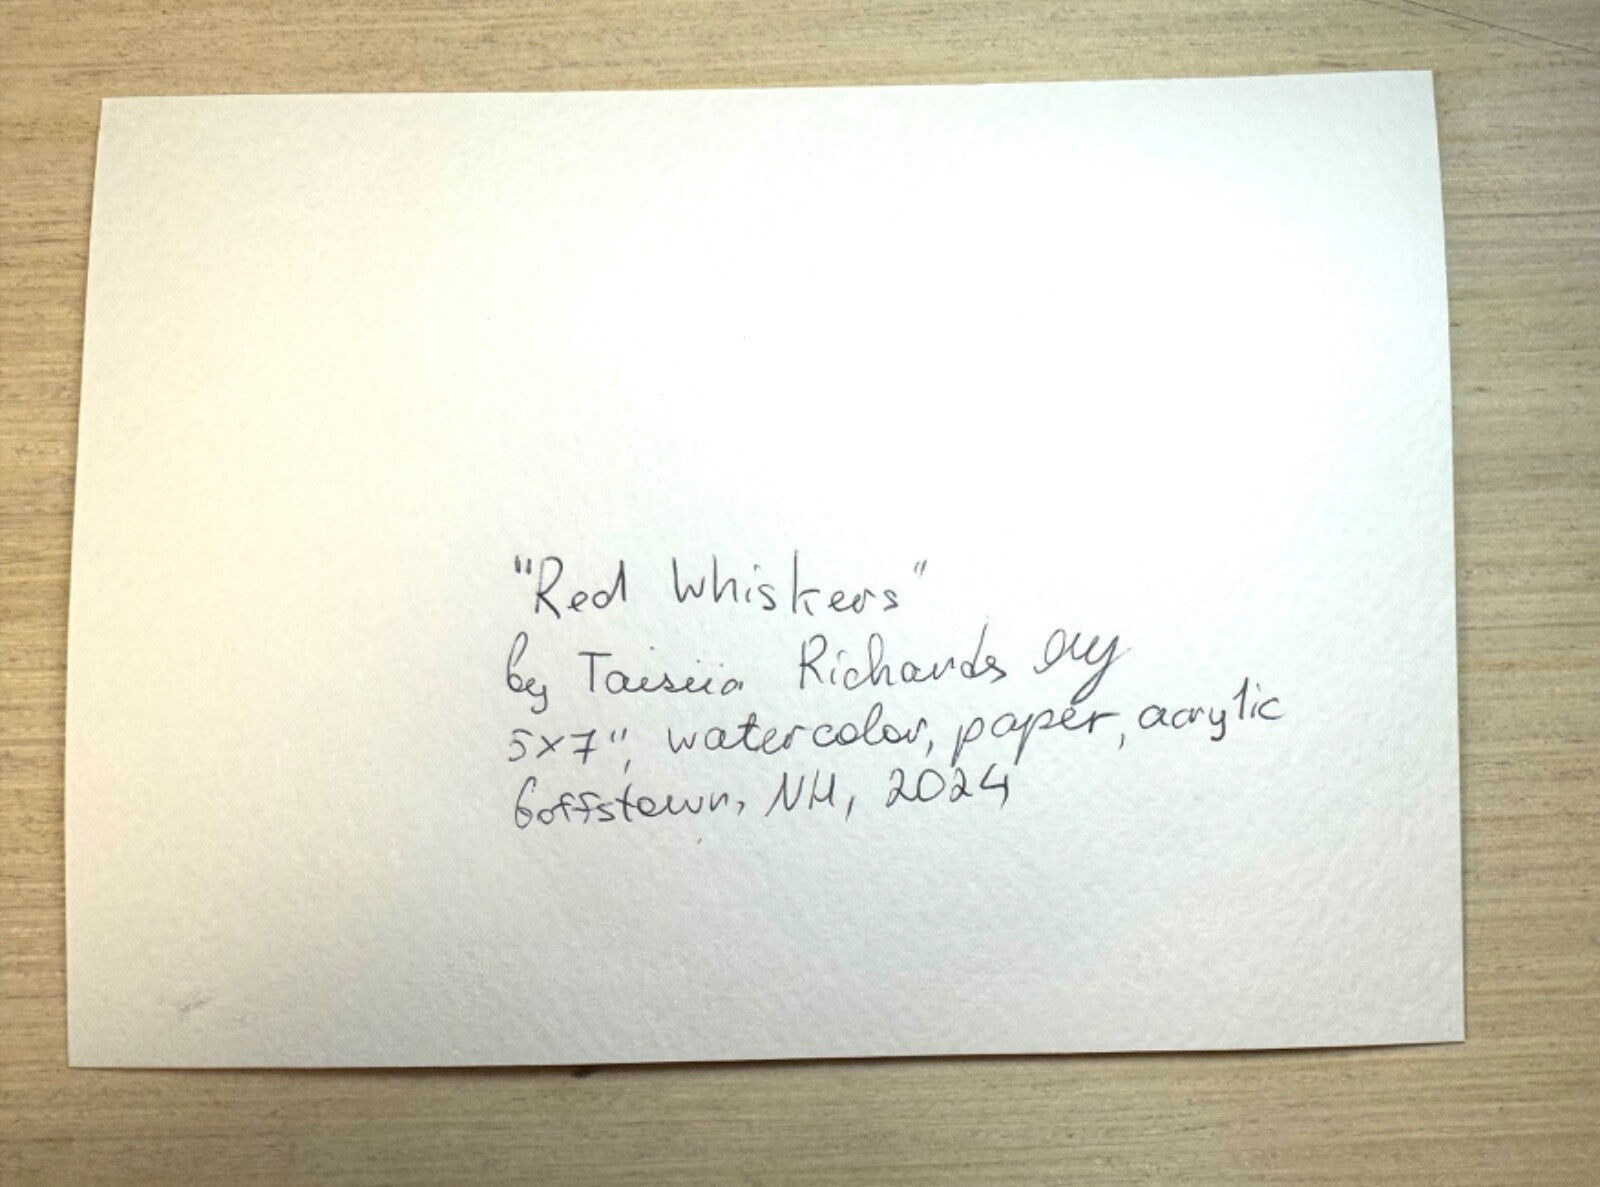 "Red Whiskers"
by Taisiia Richards
5x7", watercolor, paper, acrylic
Goffstown, NH, 2024